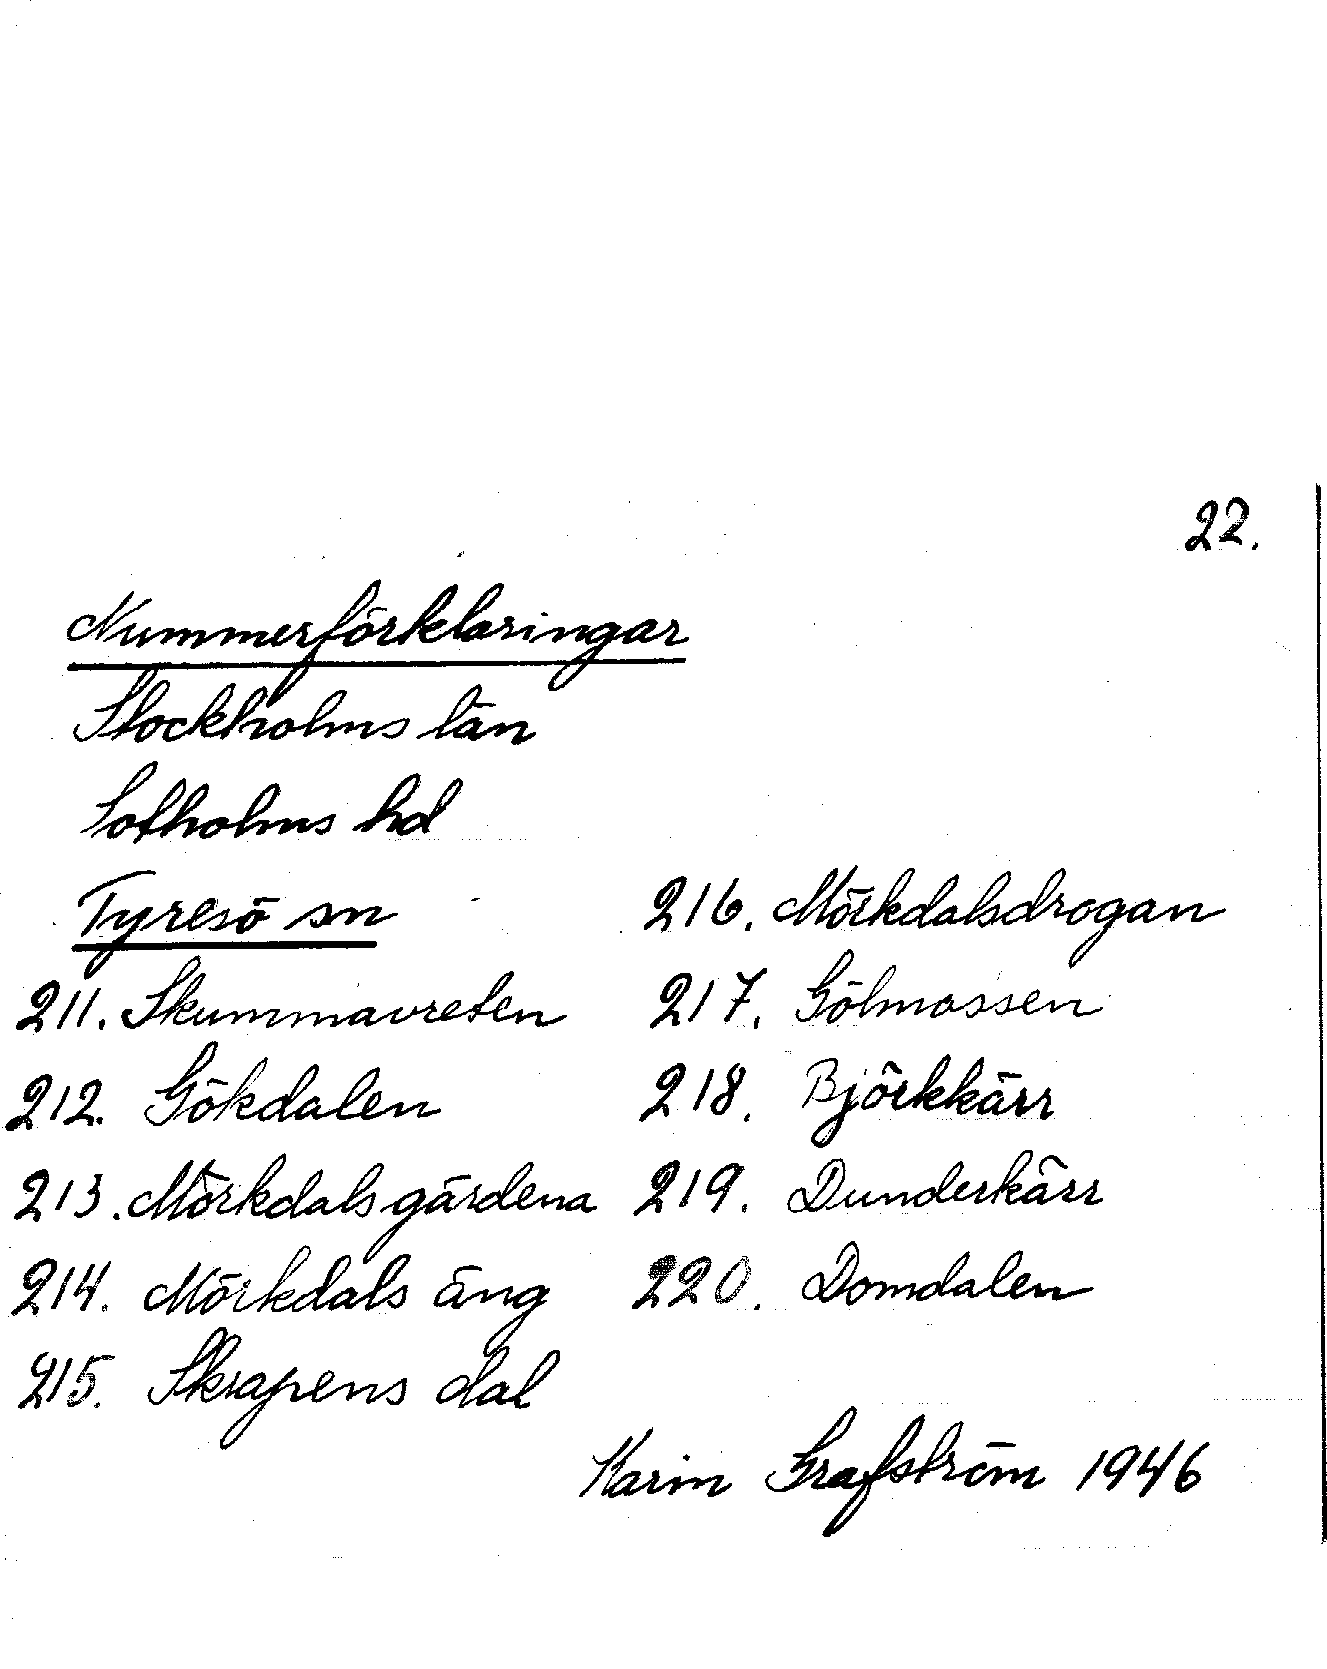 22.
Nummerförklaringar
Stockholms län
Sotholms hd
Tyresö sn
211. Skummavreten
212. Gökdalen
213. Mörkdalsgärdena
214. Mörkdals äng
215. Skrapens dal
216. Mörkdalsdrogan
217. Gölmossen
218. Björkkärr
219. Dunderkärr
220. Domdalen
Karin Grafström 1946